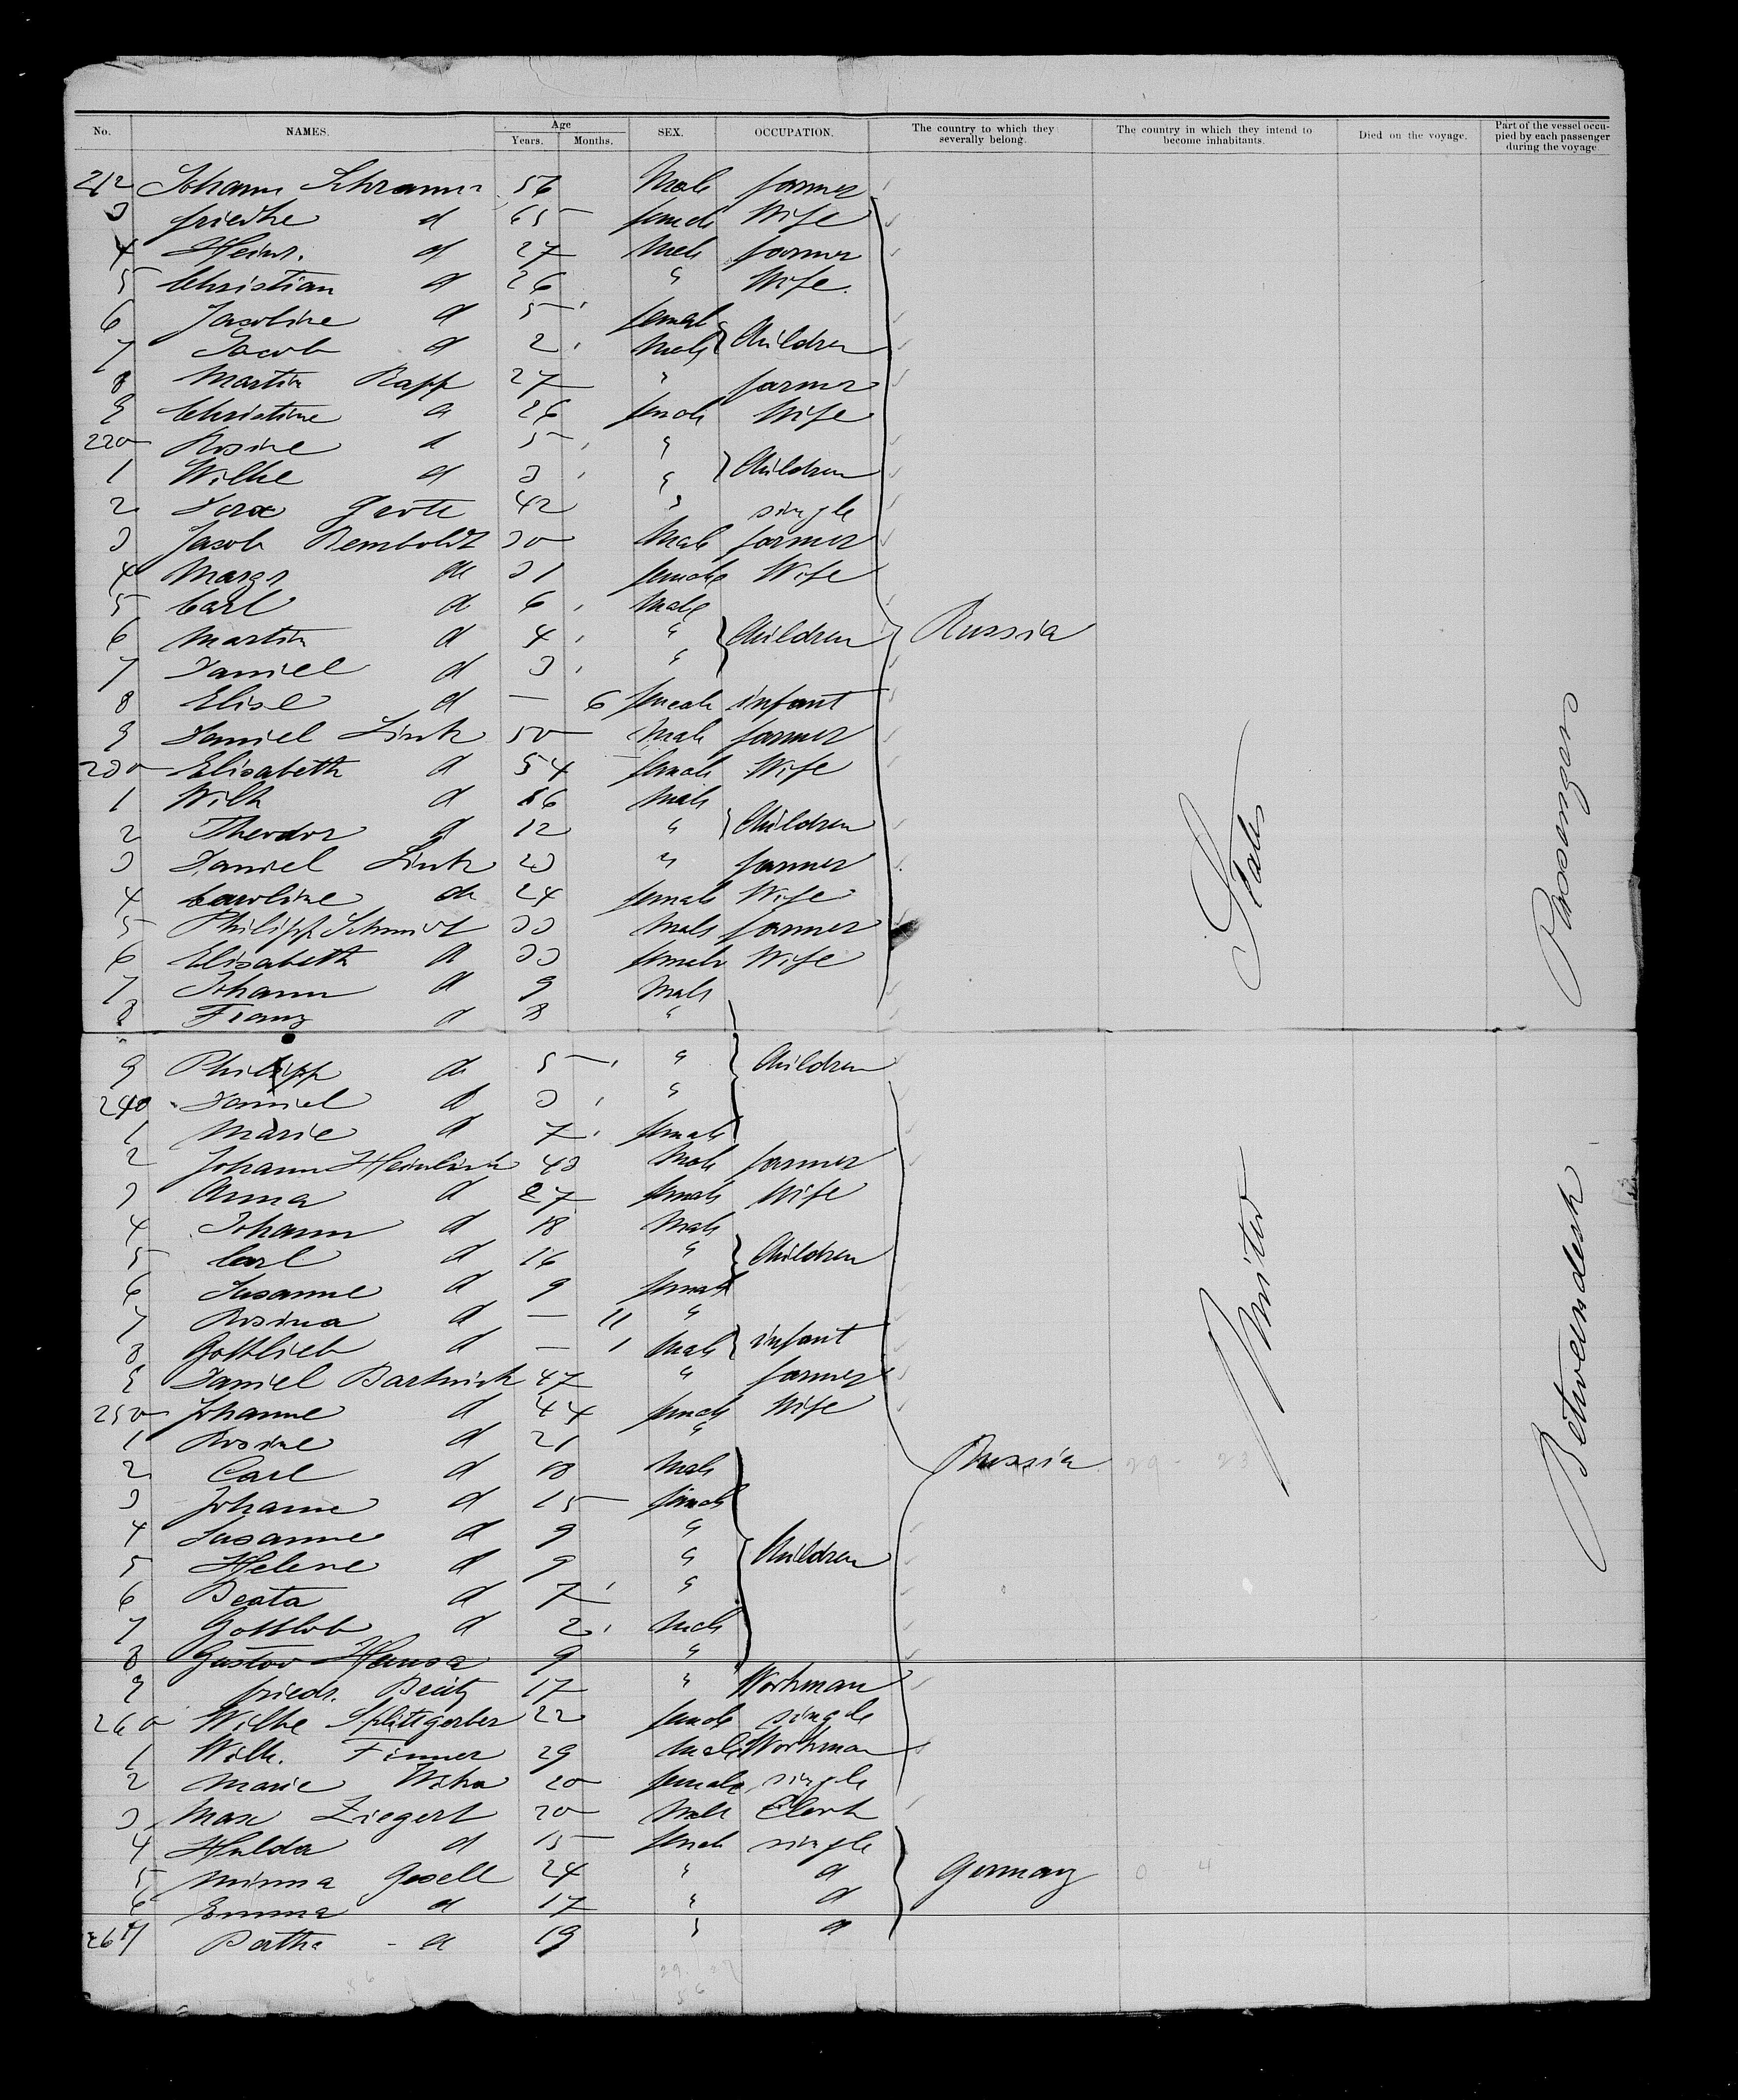 No. NAMES. Age Years. Months. SEX. OCCUPATION. The country to which they severally belong. The country in which they intend to become inhabitants. Died on the voyage. Part of the vessel occupied by each passenger during the voyage
212 Johann Schramm 56 Male farmer
3 friedke d 65 female Wife
4 Heinr. d 27 Male farmer
5 Christian d 26 " Wife.
6 Jacobine d 5 female
7 Jacob d 2 Male Children
8 Martin Rapp 27 " farmer
9 Christine d 26 female Wife
220 Rosine d 5 "
1 Wilhe d 3 " Children
2 42 " single
3 Jacob Remboldt 30 Male farmer
4 Margr do 31 female Wife
5 Carl d 6 Male
6 Martin d 4 " Children Russia
7 Daniel d 3 "
8 Elise d — 6 female infant
9 Daniel Link 50 Male farmer
230 Elisabeth d 54 female Wife
1 Wilh d 16 Male
2 Theodor d 12 " Children
3 Daniel Link 23 " farmer
4 Caroline do 24 female Wife
5 Philipp Schmidt 33 Male farmer
6 Elisabeth d 33 female Wife
7 Johann d 9 Male
8 Franz d 8 "
9 Philipp do 5 " Children
240 Daniel d 3 "
1 Marie d 7 female
2 Johann 43 Male farmer
3 Anna d 27 female Wife
4 Johann d 18 Male
5 Carl d 16 " Children
6 Susanne d 9 female
7 Rosina d — 11 "
8 Gottlieb d — 1 Male infant
9 Daniel 47 " farmer
250 Johanne d 44 female Wife
1 Rosine d 21 "
2 Carl d 18 Male Russia
3 Johanne d 15 female
4 Susanne d 9 "
5 Helene d 9 " Children
6 Beata d 7 "
7 Gottlob d 2 Male
8 Gustav 9 "
9 friedr. 17 " Workman
260 Wilhe Splittgerber 22 female single
1 Wilh. Finner 29 Male Workman
2 Marie 20 female single
3 Max Ziegert 20 Male Clerk
4 Hulda d 15 female single
5 Minna Gesell 24 " d Germany
6 Emma d 17 " d
267 Bertha d 19 " d
United States
Betweendeck Passengers